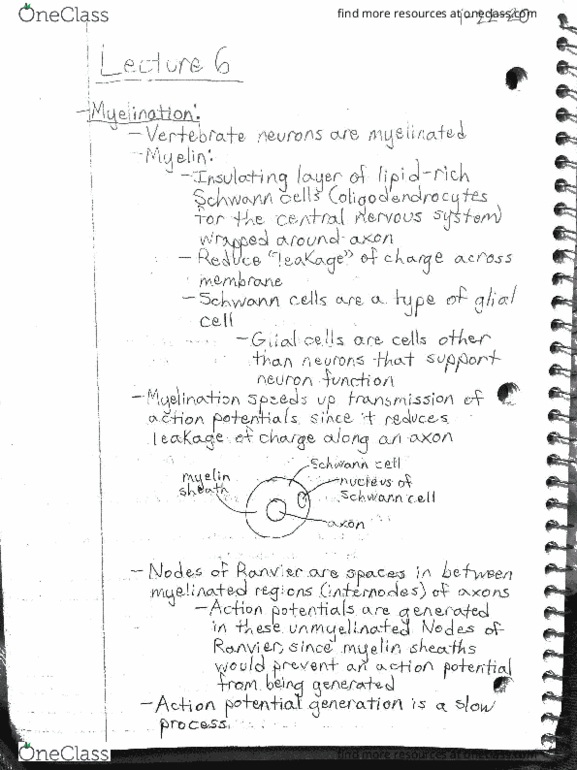 OneClass
find more resources at oneclass.com
Lecture 6
- Myelination:
- Vertebrate neurons are myelinated
- Myelin:
- Insulating layer of lipid-rich
Schwann cells (oligodendrocytes
for the central nervous system)
wrapped around axon
- Reduce "leakage" of charge across
membrane
- Schwann cells are a type of glial
cell
- Glial cells are cells other
than neurons that support
neuron function
- Myelination speeds up transmission of
action potentials since it reduces
leakage of charge along an axon
Schwann cell
myelin
sheath
nucleus of
Schwann cell
axon
- Nodes of Ranvier are spaces in between
myelinated regions (internodes) of axons
- Action potentials are generated
in these unmyelinated Nodes of
Ranvier, since myelin sheaths
would prevent an action potential
from being generated
- Action potential generation is a slow
process.
OneClass
find more resources at oneclass.com